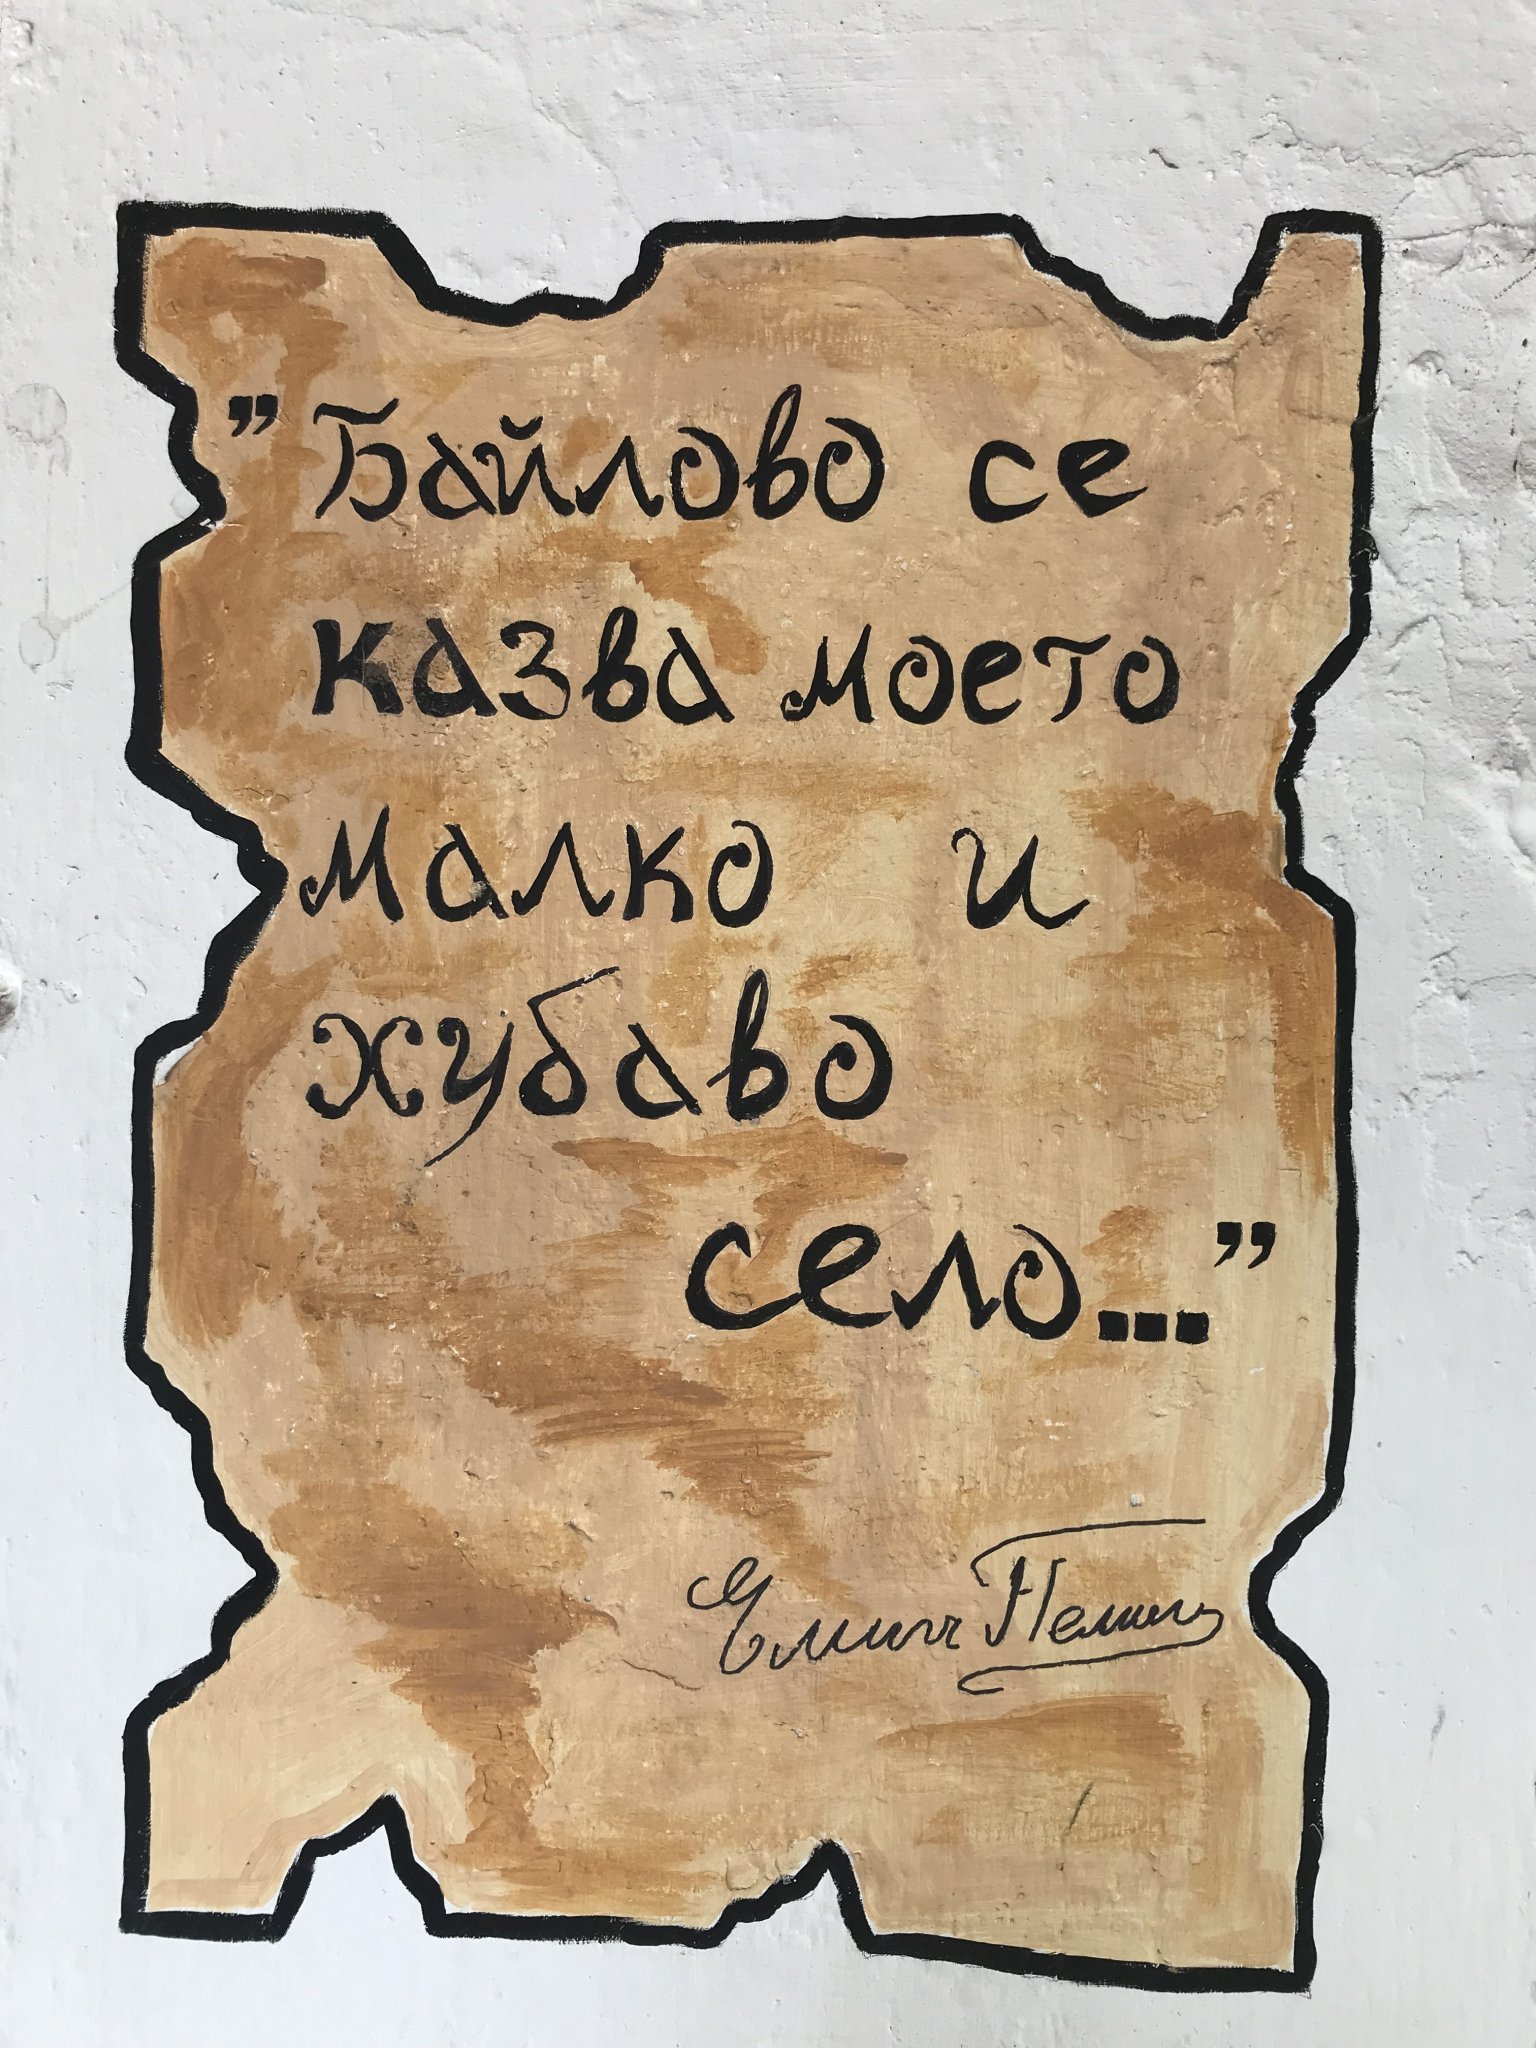 ”Байлово се
казва моето
малко и
хубаво
село...”
Елин Пелин